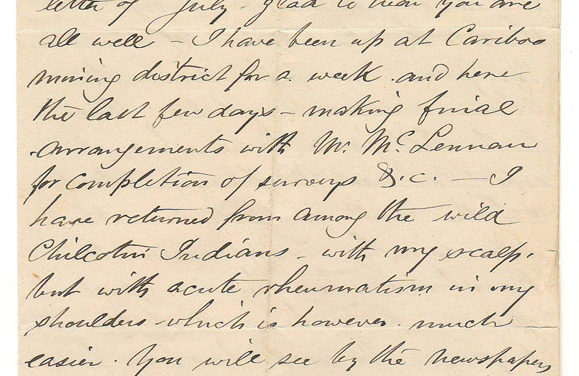 letter of July - glad to hear you are
all well - I have been up at Cariboo
mining district for a week . and here
the last few days - making final
arrangements with Mr. McLennan
for completion of surveys &.c. - I
have returned from among the wild
Chilcotin Indians - with my scalp.
but with acute rheumatism in my
shoulders which is however much
easier . You will see by the newspapers